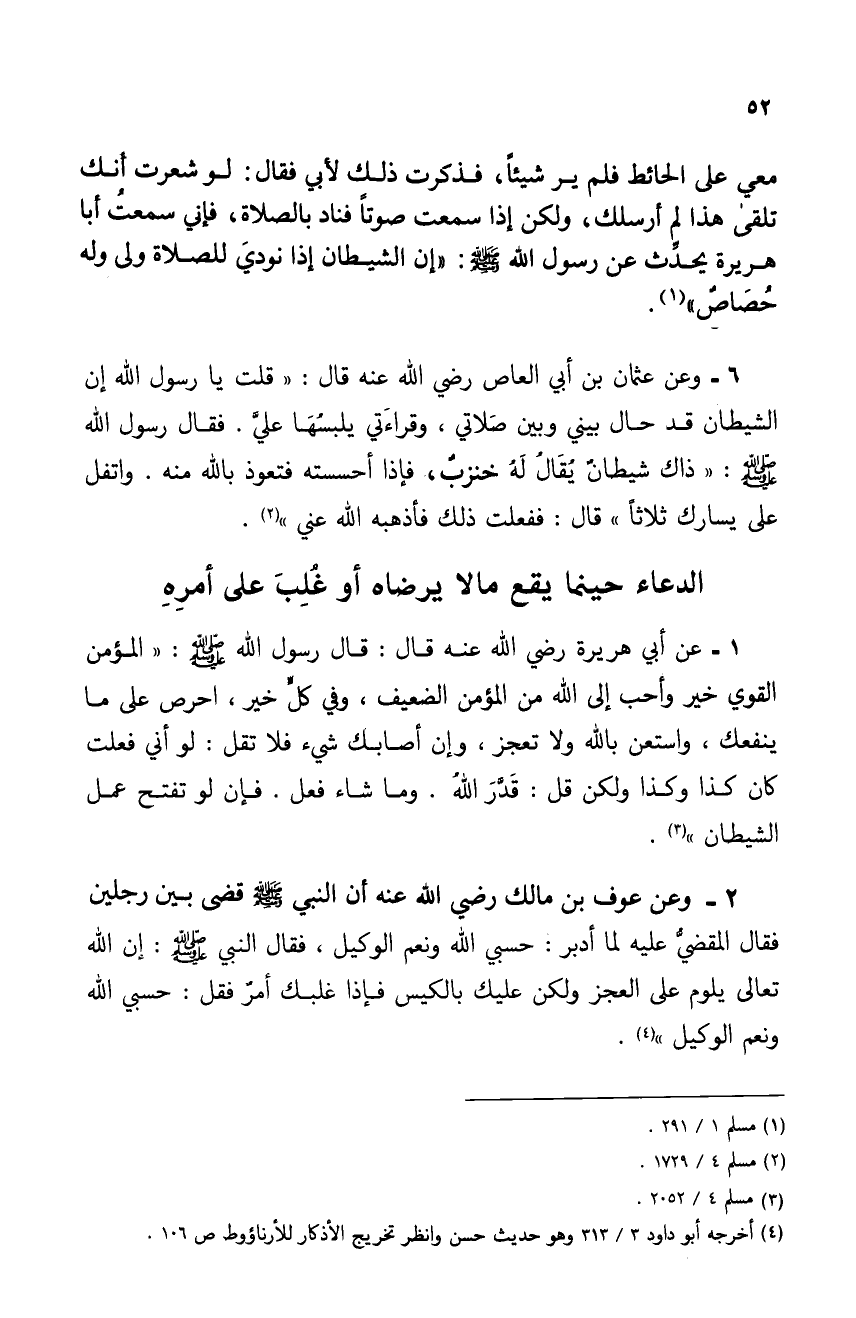 ٥٢
معي على الحائط فلم يـر شيئاً، فـذكرت ذلـك لأبي فقال: لـو شعرت أنـك
تلقىٰ هذا لم أرسلك، ولكن إذا سمعت صوتاً فناد بالصلاة، فإني سمعتُ أبا
هـريرة يحـدِّث عن رسول الله ﷺ: «إن الشيـطان إذا نوديَ للصـلاة ولى وله
حُصَاصٌ»(١).
٦ ـ وعن عثمان بن أبي العاص رضي الله عنه قال : « قلت يا رسول الله إن
الشيطـان قـد حـال بيني وبين صَلاتي ، وقراءَتي يلبسُهَـا عليَّ . فقـال رسول الله
ﷺ : « ذاك شيطانٌ يُقَالُ لَهُ خنزبٌ، فإذا أحسسته فتعوذ بالله منه . واتفل
على يسارك ثلاثاً » قال : ففعلت ذلك فأذهبه الله عني »(٢) .
الدعاء حينما يقع مالا يرضاه أو غُلِبَ على أمرِهِ
١ ـ عن أبي هريرة رضي الله عنـه قـال : قـال رسول الله ﷺ : « المـؤمن
القوي خير وأحب إلى الله من المؤمن الضعيف ، وفي كلٍّ خير ، احرص على مـا
ينفعك ، واستعن بالله ولا تعجز ، وإن أصـابـك شيء فلا تقل : لو أني فعلت
كان كـذا وكـذا ولكن قل : قَدَّرَ اللهُ . ومـا شـاء فعل . فـإن لو تفتـح عمـل
الشيطان »(٣) .
٢ ـ وعن عوف بن مالك رضي الله عنه أن النبي ﷺ قضى بـين رجلين
فقال المقضيُّ عليه لما أدبر : حسبي الله ونعم الوكيل ، فقال النبي ﷺ : إن الله
تعالى يلوم على العجز ولكن عليك بالكيس فـإذا غلبـك أمرٌ فقل : حسبي الله
ونعم الوكيل »(٤) .
(١) مسلم ١ / ٢٩١ .
(٢) مسلم ٤ / ١٧٢٩ .
(٣) مسلم ٤ / ٢٠٥٢ .
(٤) أخرجه أبو داود ٣ / ٣١٣ وهو حديث حسن وانظر تخريج الأذكار للأرناؤوط ص ١٠٦ .